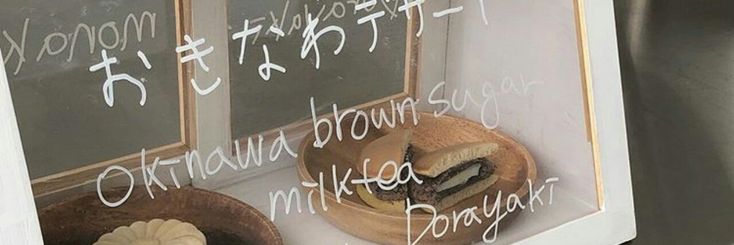 おきなわデザート
Okinawa brown sugar
milktea
Dorayaki